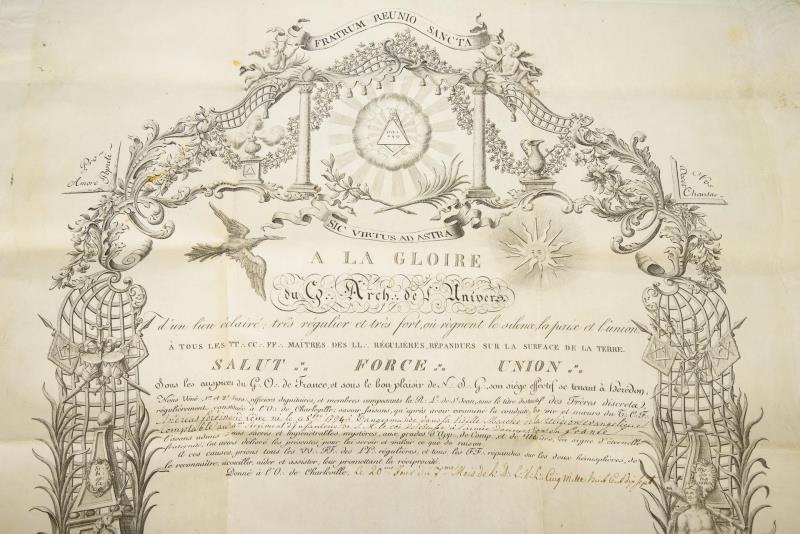 FRATRUM REUNIO SANCTA
Pro
Amore Populi
Nos
Chantas
SIC VIRTUS AD ASTRA
A LA GLOIRE
du G∴ Arch∴ de l'Univers
d'un lieu éclairé, très régulier et très fort, où règnent le silence, la paix et l'union
À TOUS LES TT∴ CC∴ FF∴ MAITRES DES LL∴ RÉGULIÈRES, RÉPANDUES SUR LA SURFACE DE LA TERRE.
SALUT ∴ FORCE ∴ UNION ∴
Sous les auspices du G∴ O∴ de France, et sous le bon plaisir de N∴ S∴ G∴ son siège effectif se tenant à Hérédon,
Nous Véné∴ 1er et 2d Surv∴ officiers dignitaires, et membres composants la R∴ L∴ de St Jean, sous le titre distinctif des Frères discrets
régulièrement constituée à l'O∴ de Charleville; savoir faisons, qu'après avoir examiné la conduite vie et mœurs du T∴ C∴ F∴
né le 1794 dans la Religion evangelique
l'avons admis aux sacrés et impénétrables mystères, aux grades d'App∴ de Comp∴ et de Maître, en signe d'éternelle
fraternité, lui avons délivré les présentes, pour lui servir et valoir ce que de raison
A ces causes, prions tous les VV∴ FF∴ des LL∴ régulières, et tous les FF∴ répandus sur les deux hémisphères, de
le reconnaître, accueillir, aider et assister, leur promettant la réciprocité.
Donné à l'O∴ de Charleville, Le 20me Jour du 7me Mois de l'a∴ de L∴ V∴ L∴ Cinq mille huit cent dix sept